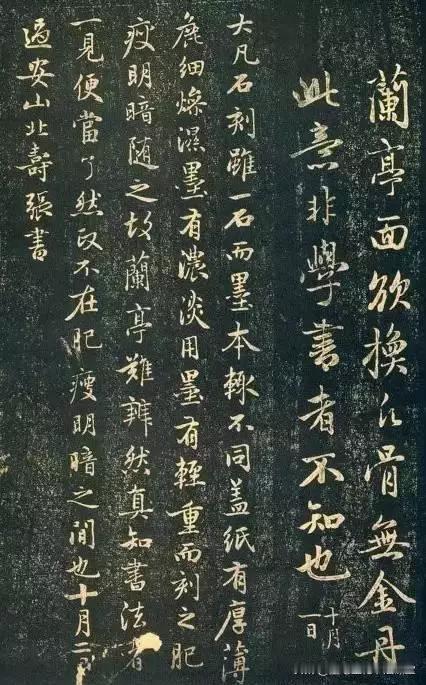 蘭亭面欲換凡骨無金丹
此意非學書者不知也十月一日
大凡石刻雖一石而墨本輙不同盖紙有厚薄
麁細燥濕墨有濃淡用墨有輕重而刻之肥
瘦明暗随之故蘭亭難辨然真知書法者
一見便當了然正不在肥瘦明暗之間也十月二日
過安山北壽張書